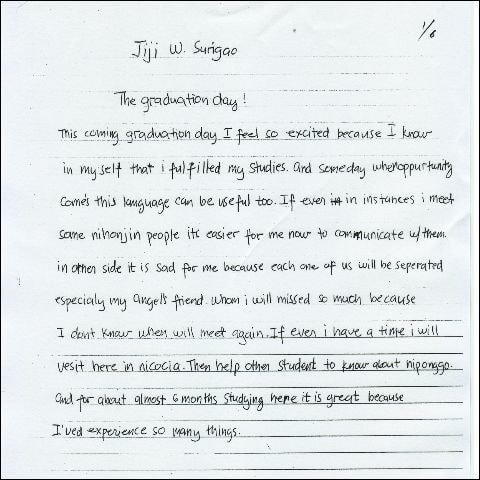 1/6
Jiji W. Surigao
The graduation day!
This coming graduation day I feel so excited because I know
in my self that i fulfilled my studies. and someday when oppurtunity
come's this language can be useful too. If even in in instances i meet
some nihonjin people its easier for me now to communicate w/ them.
in other side it is sad for me because each one of us will be seperated
especialy my angel's friend. whom i will missed so much because
I dont know when will meet again. If even i have a time i will
vesit here in nicocia. Then help other student to know about niponggo.
and for about almost 6 months studying here it is great because
I'ved experience so many things.